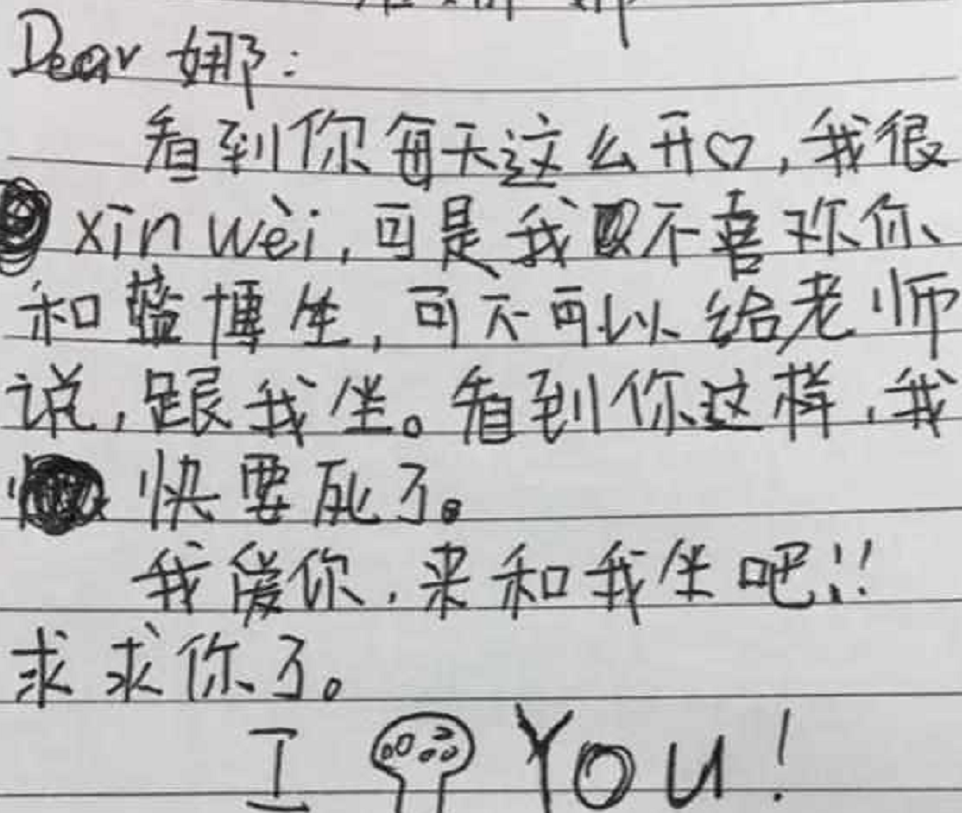 Dear 娜:
看到你每天这么开♡,我很
xīn wèi,可是我又不喜欢你
和蓝博坐,可不可以给老师
说,跟我坐。看到你这样,我
快要死了。
我爱你,来和我坐吧!!
求求你了。
I You!